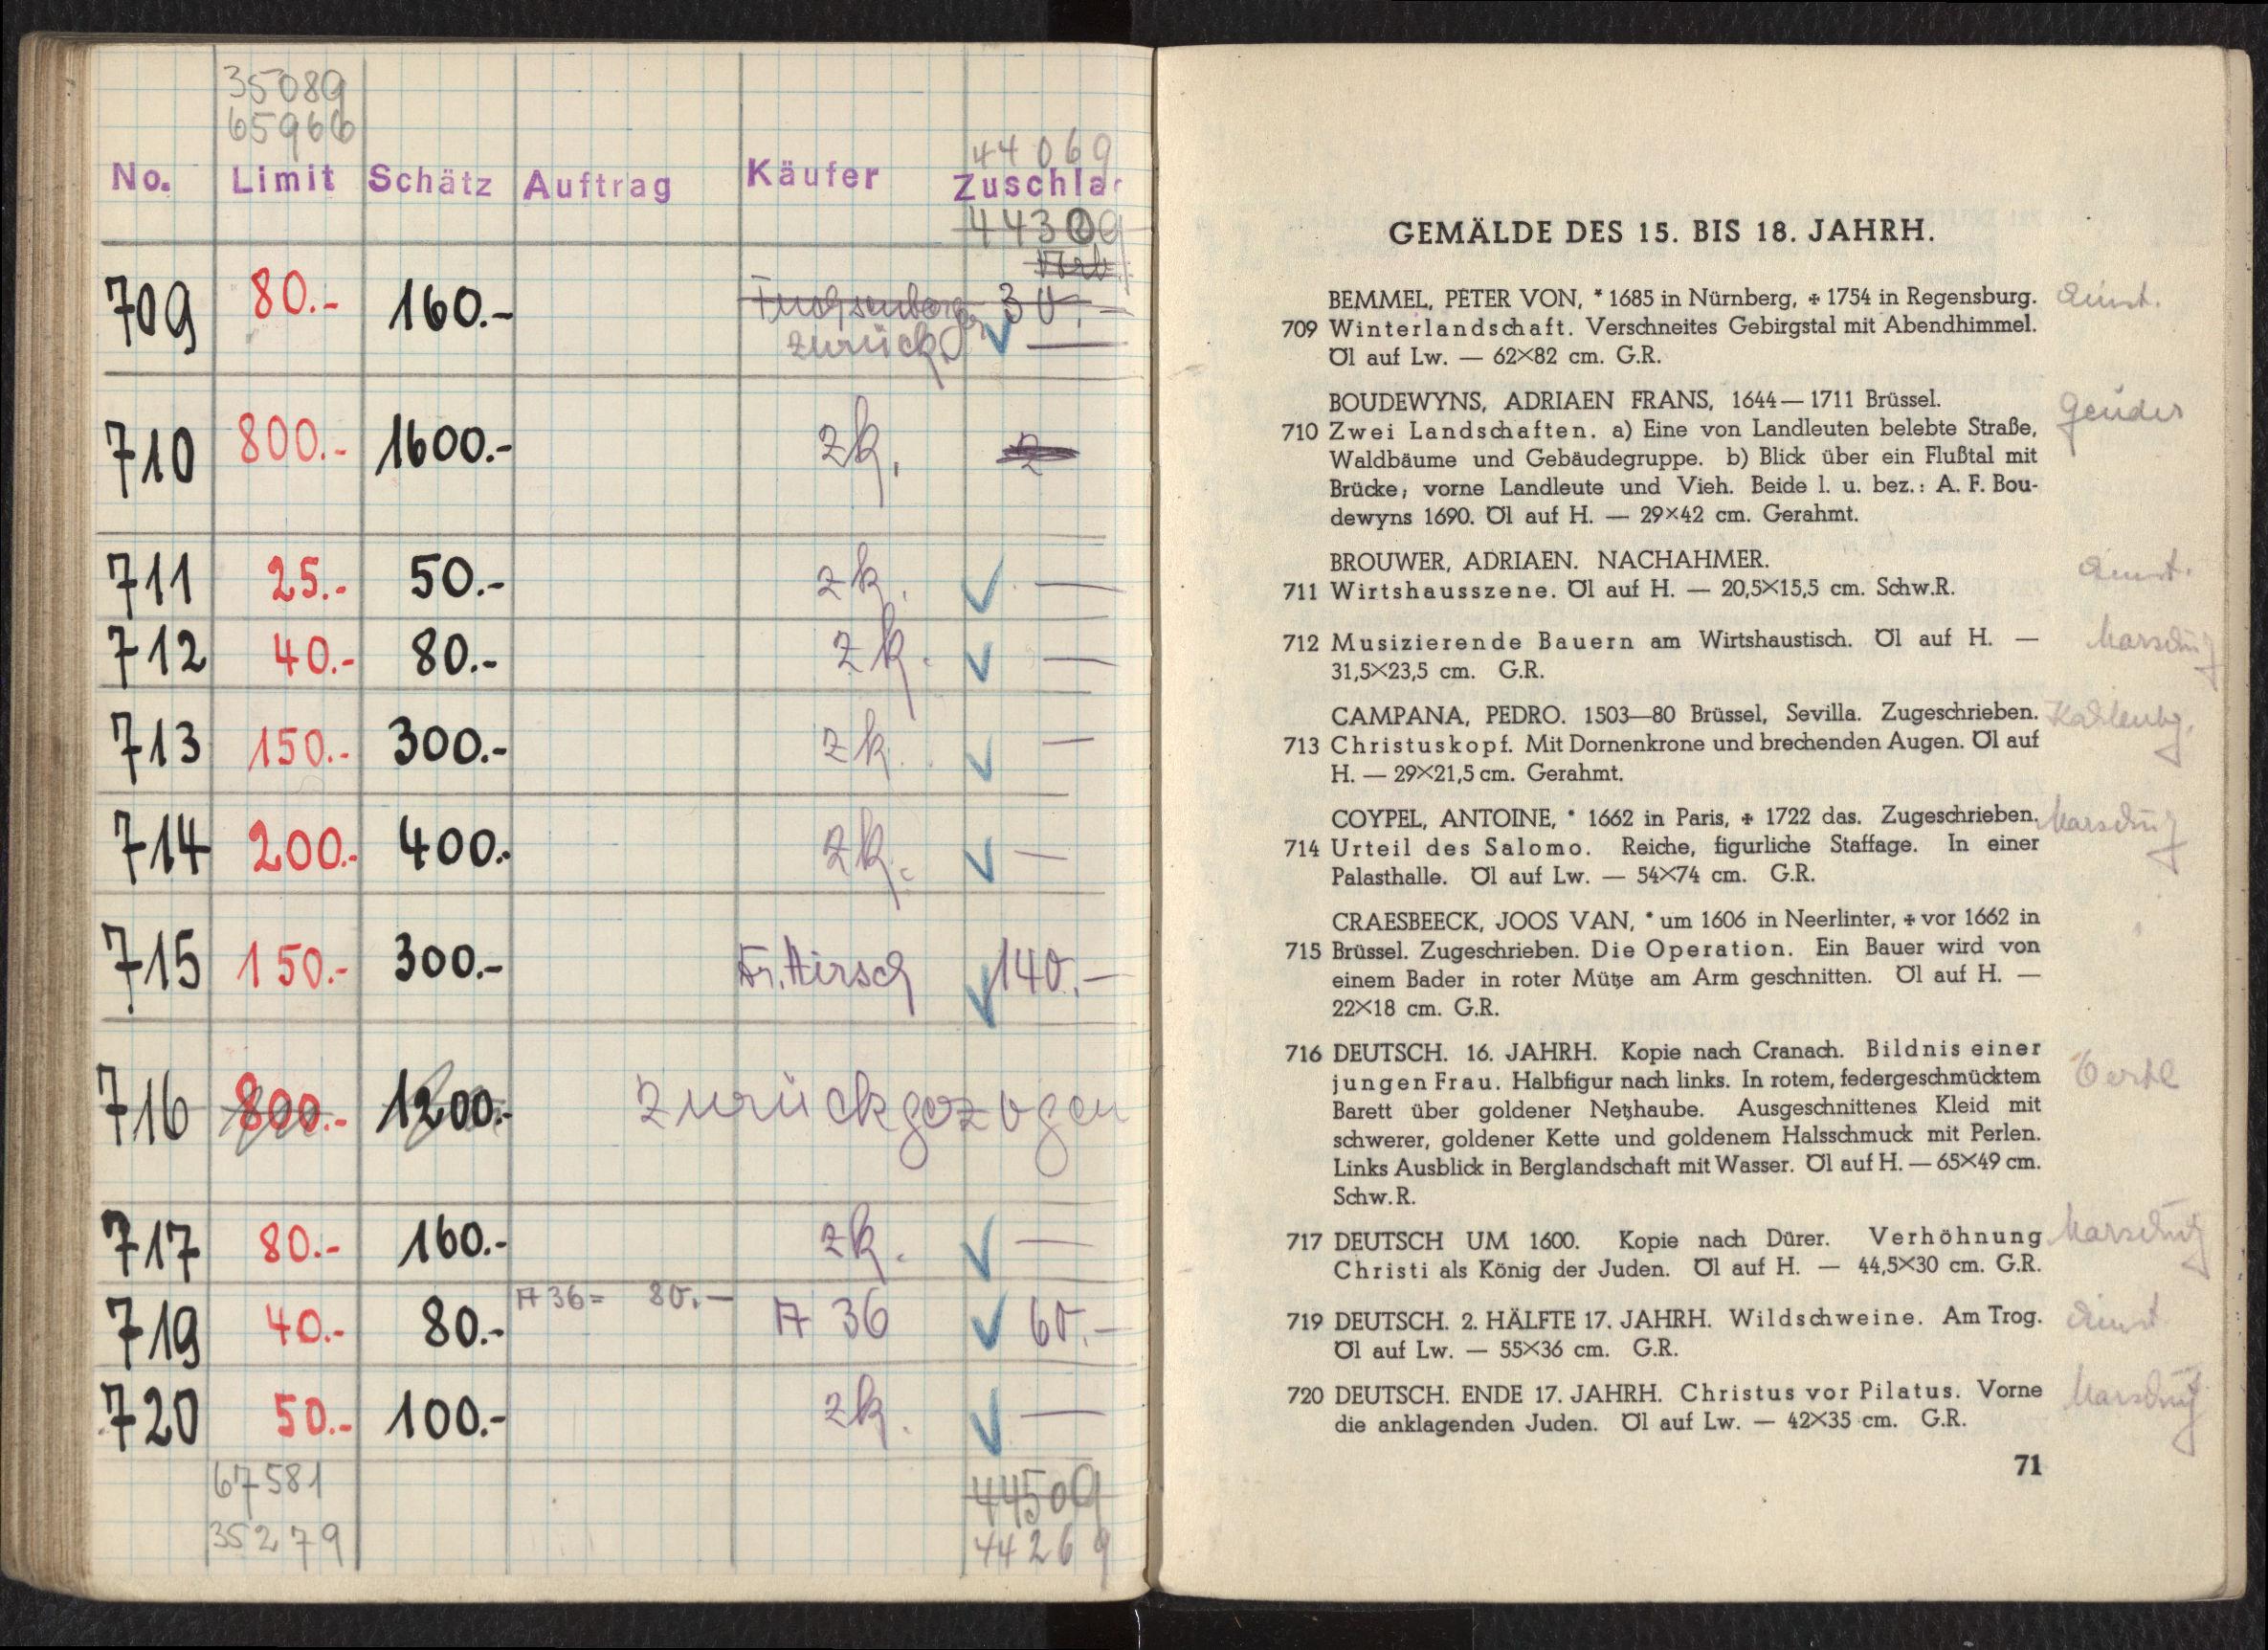 35089
65966
44069
No. Limit Schätz Auftrag Käufer Zuschla
44309
709 80.- 160.- 30.-
zurück —
710 800.- 1600.- zk.
711 25.- 50.- zk. —
712 40.- 80.- zk. —
713 150.- 300.- zk. —
714 200.- 400.- zk. —
715 150.- 300.- Fr. Hirsch 140.-
716 800.- 1200.- zurückgezogen
717 80.- 160.- zk. —
A 36 = 80.-
719 40.- 80.- A 36 60.-
720 50.- 100.- zk. —
67581
35279
44509
44269
GEMÄLDE DES 15. BIS 18. JAHRH.
BEMMEL, PETER VON, * 1685 in Nürnberg, ✠ 1754 in Regensburg.
709 Winterlandschaft. Verschneites Gebirgstal mit Abendhimmel.
Öl auf Lw. — 62×82 cm. G.R.
BOUDEWYNS, ADRIAEN FRANS, 1644— 1711 Brüssel.
Geuder
710 Zwei Landschaften. a) Eine von Landleuten belebte Straße,
Waldbäume und Gebäudegruppe. b) Blick über ein Flußtal mit
Brücke; vorne Landleute und Vieh. Beide l. u. bez.: A. F. Bou-
dewyns 1690. Öl auf H. — 29×42 cm. Gerahmt.
BROUWER, ADRIAEN. NACHAHMER.
711 Wirtshausszene. Öl auf H. — 20,5×15,5 cm. Schw.R.
712 Musizierende Bauern am Wirtshaustisch. Öl auf H. —
31,5×23,5 cm. G.R.
CAMPANA, PEDRO. 1503—80 Brüssel, Sevilla. Zugeschrieben.
713 Christuskopf. Mit Dornenkrone und brechenden Augen. Öl auf
H. — 29×21,5 cm. Gerahmt.
COYPEL, ANTOINE, * 1662 in Paris, ✠ 1722 das. Zugeschrieben.
714 Urteil des Salomo. Reiche, figurliche Staffage. In einer
Palasthalle. Öl auf Lw. — 54×74 cm. G.R.
CRAESBEECK, JOOS VAN, * um 1606 in Neerlinter, ✠ vor 1662 in
715 Brüssel. Zugeschrieben. Die Operation. Ein Bauer wird von
einem Bader in roter Mütze am Arm geschnitten. Öl auf H. —
22×18 cm. G.R.
716 DEUTSCH. 16. JAHRH. Kopie nach Cranach. Bildnis einer
Oertl
jungen Frau. Halbfigur nach links. In rotem, federgeschmücktem
Barett über goldener Netzhaube. Ausgeschnittenes Kleid mit
schwerer, goldener Kette und goldenem Halsschmuck mit Perlen.
Links Ausblick in Berglandschaft mit Wasser. Öl auf H. — 65×49 cm.
Schw. R.
717 DEUTSCH UM 1600. Kopie nach Dürer. Verhöhnung
Christi als König der Juden. Öl auf H. — 44,5×30 cm. G.R.
719 DEUTSCH. 2. HÄLFTE 17. JAHRH. Wildschweine. Am Trog.
Öl auf Lw. — 55×36 cm. G.R.
720 DEUTSCH. ENDE 17. JAHRH. Christus vor Pilatus. Vorne
die anklagenden Juden. Öl auf Lw. — 42×35 cm. G.R.
71